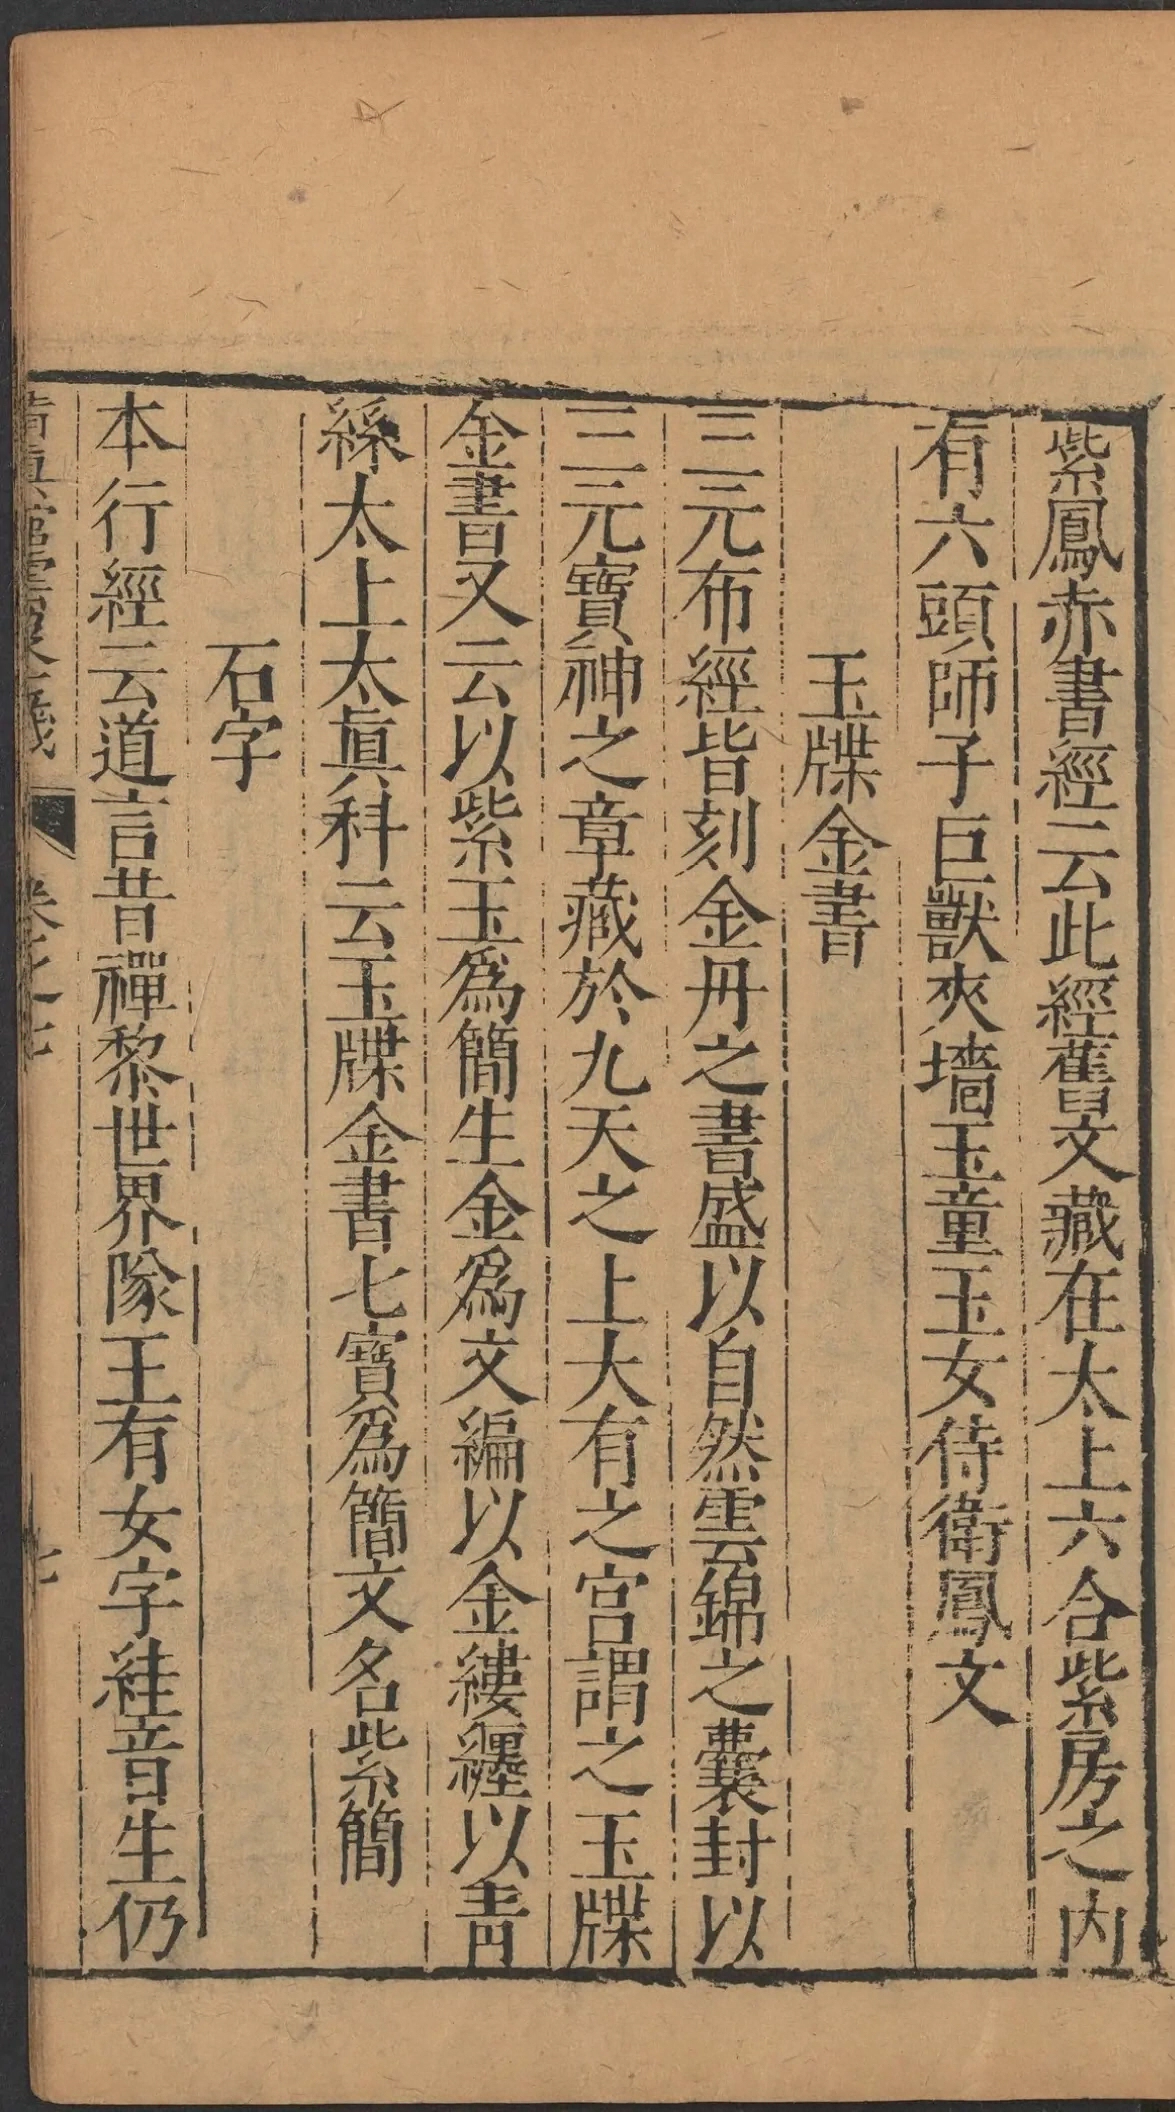 紫鳳赤書經云此經舊文藏在太上六合紫房之內
有六頭師子巨獸夾墻玉童玉女侍衛鳳文
玉牒金書
三元布經皆刻金丹之書盛以自然雲錦之囊封以
三元寶神之章藏於九天之上大有之宮謂之玉牒
金書又云以紫玉爲簡生金爲文編以金縷纒以靑
絲太上太眞科云玉牒金書七寶爲簡文名紫簡
石字
本行經云道言昔禪黎世界隊王有女字絓音生仍
卷之七
七